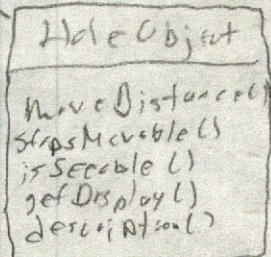 HoleObject
moveDistance()
stopsMovable()
isSeeable()
getDisplay()
description()